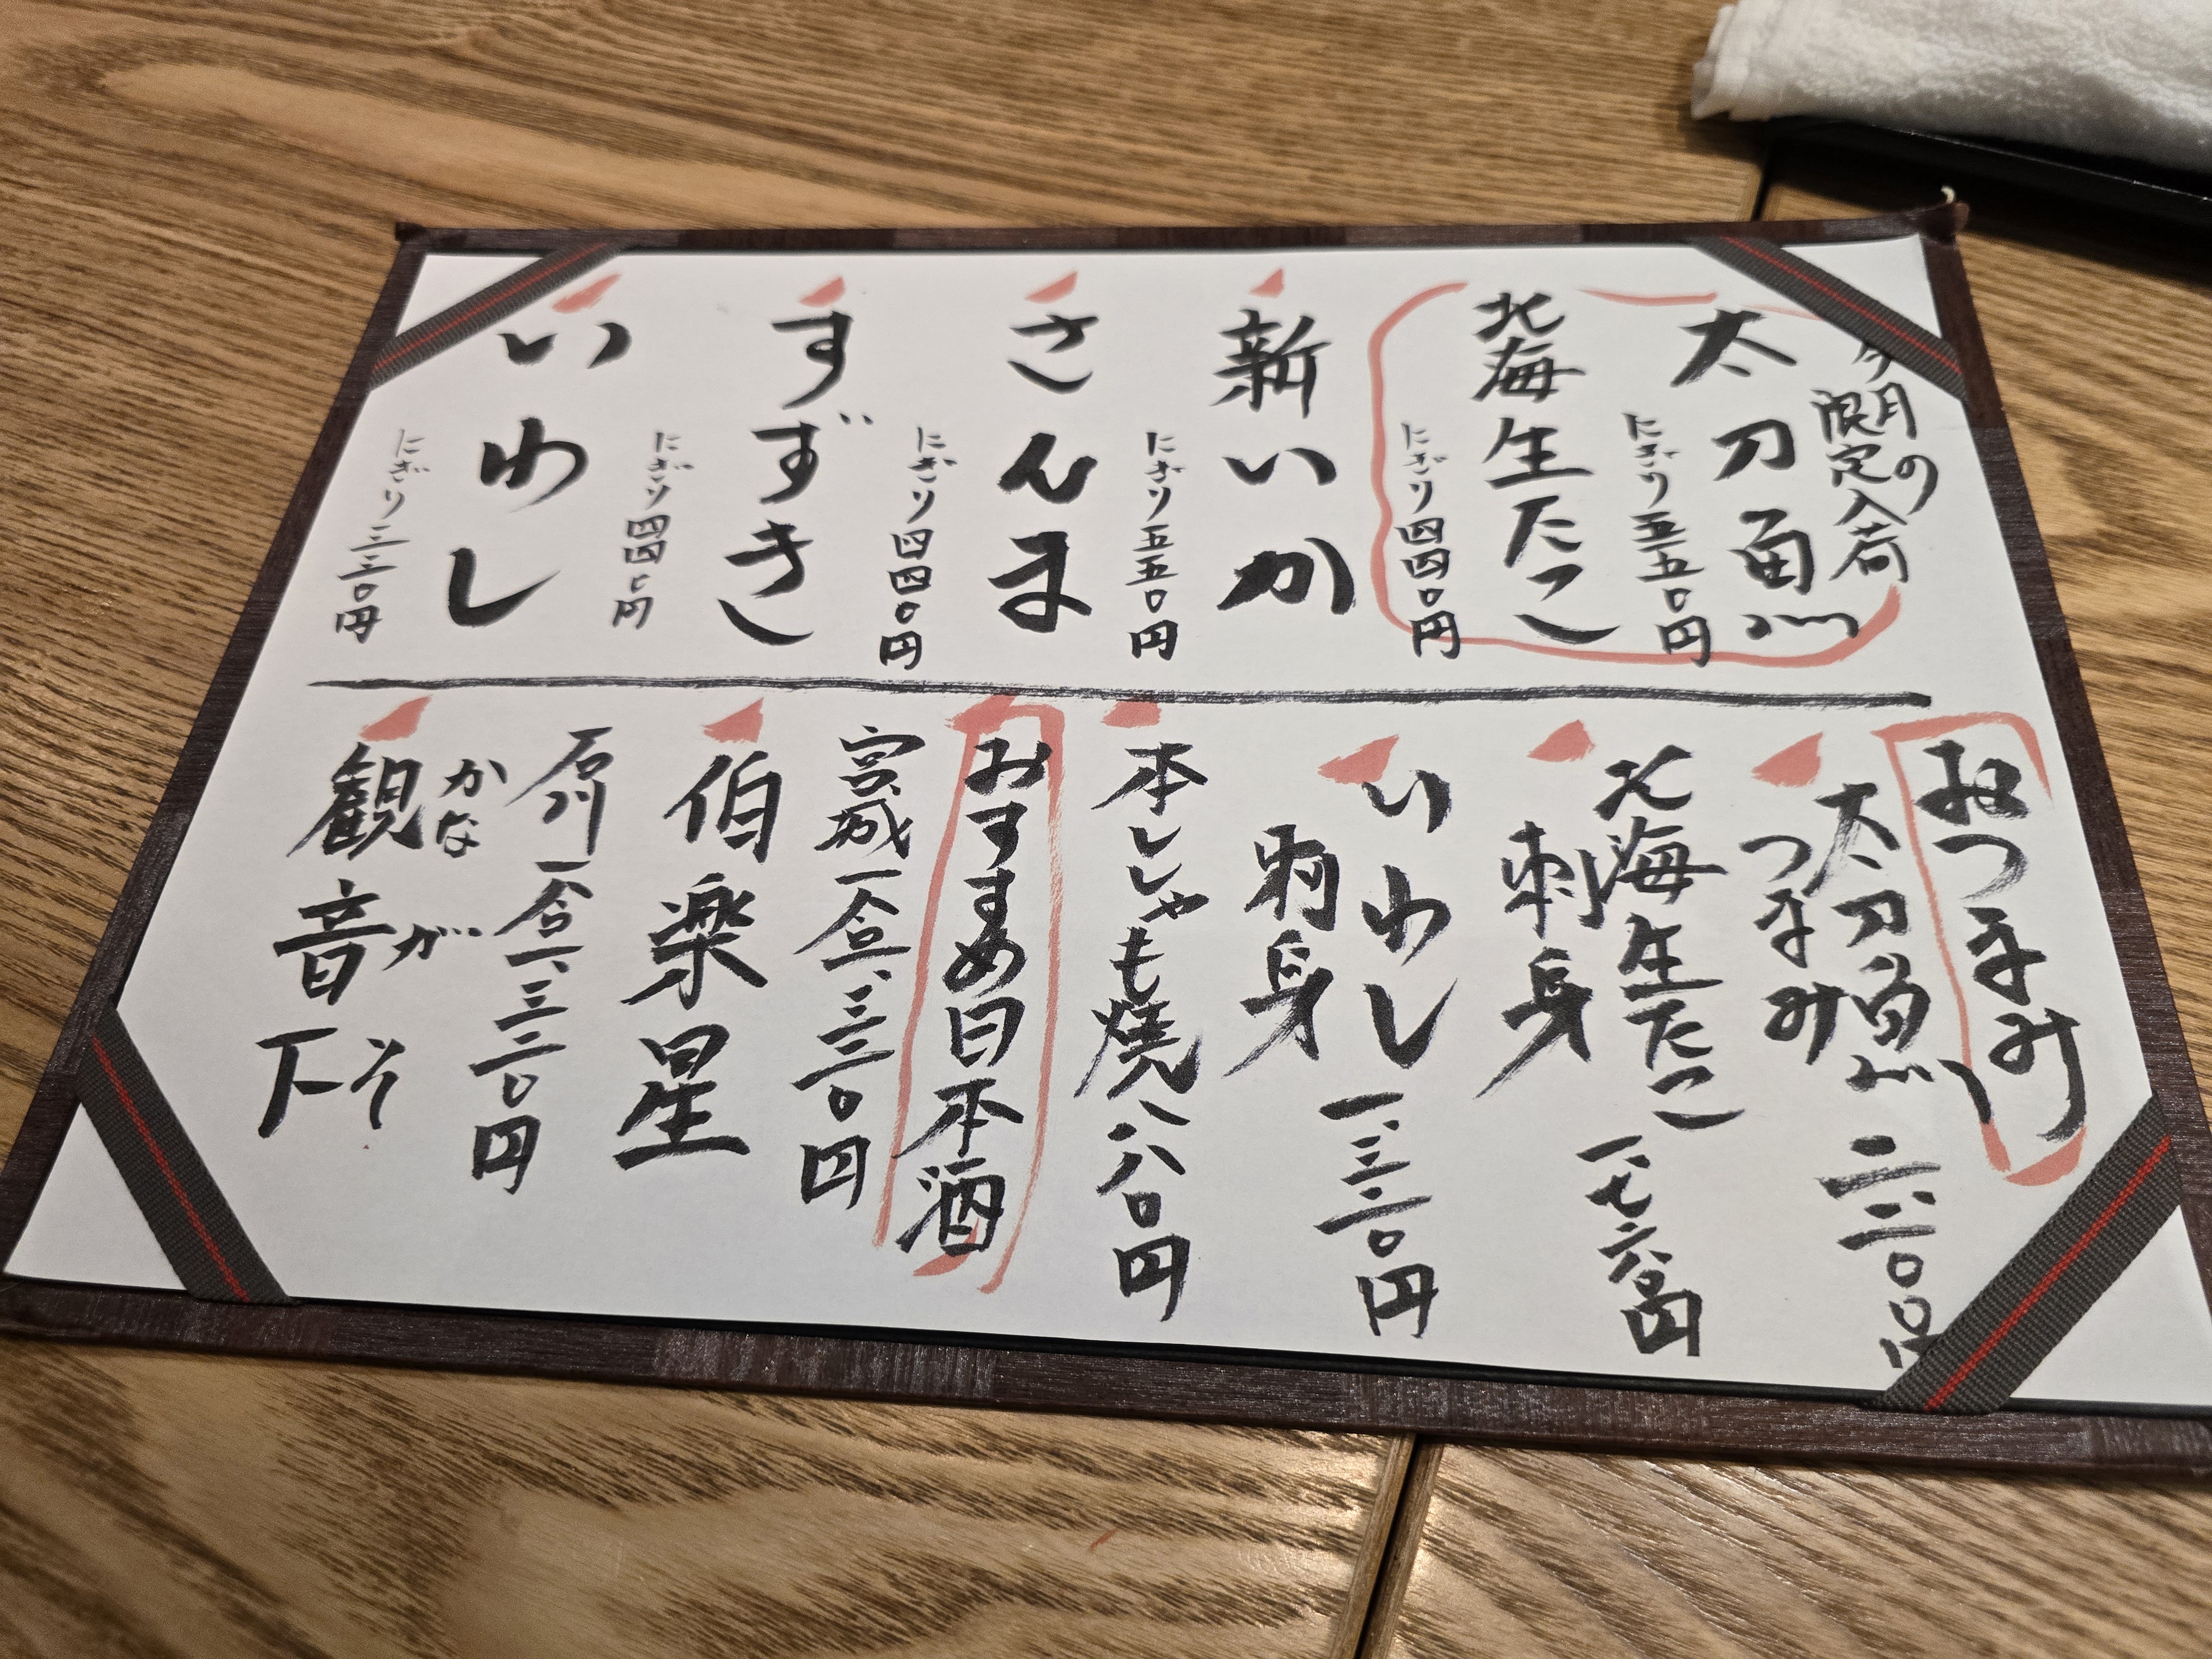 今月の
限定入荷
太刀魚
にぎり五五〇円
北海生たこ
にぎり四四〇円
新いか
にぎり五五〇円
さんま
にぎり四四〇円
すずき
にぎり四四〇円
いわし
にぎり三三〇円
おつまみ
太刀魚
つまみ
二、二〇〇円
北海生たこ
刺身
一、七六〇円
いわし
刺身
一、三二〇円
本ししゃも焼八八〇円
おすすめ日本酒
宮城一合一、三二〇円
伯楽星
石川一合一、三二〇円
かながそ
観音下